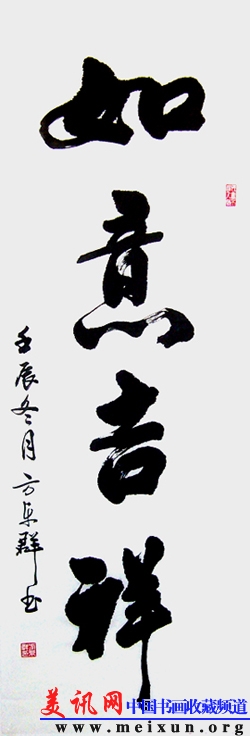 如意吉祥
壬辰冬月方東群书
美讯网 中国书画收藏频道
www.meixun.org